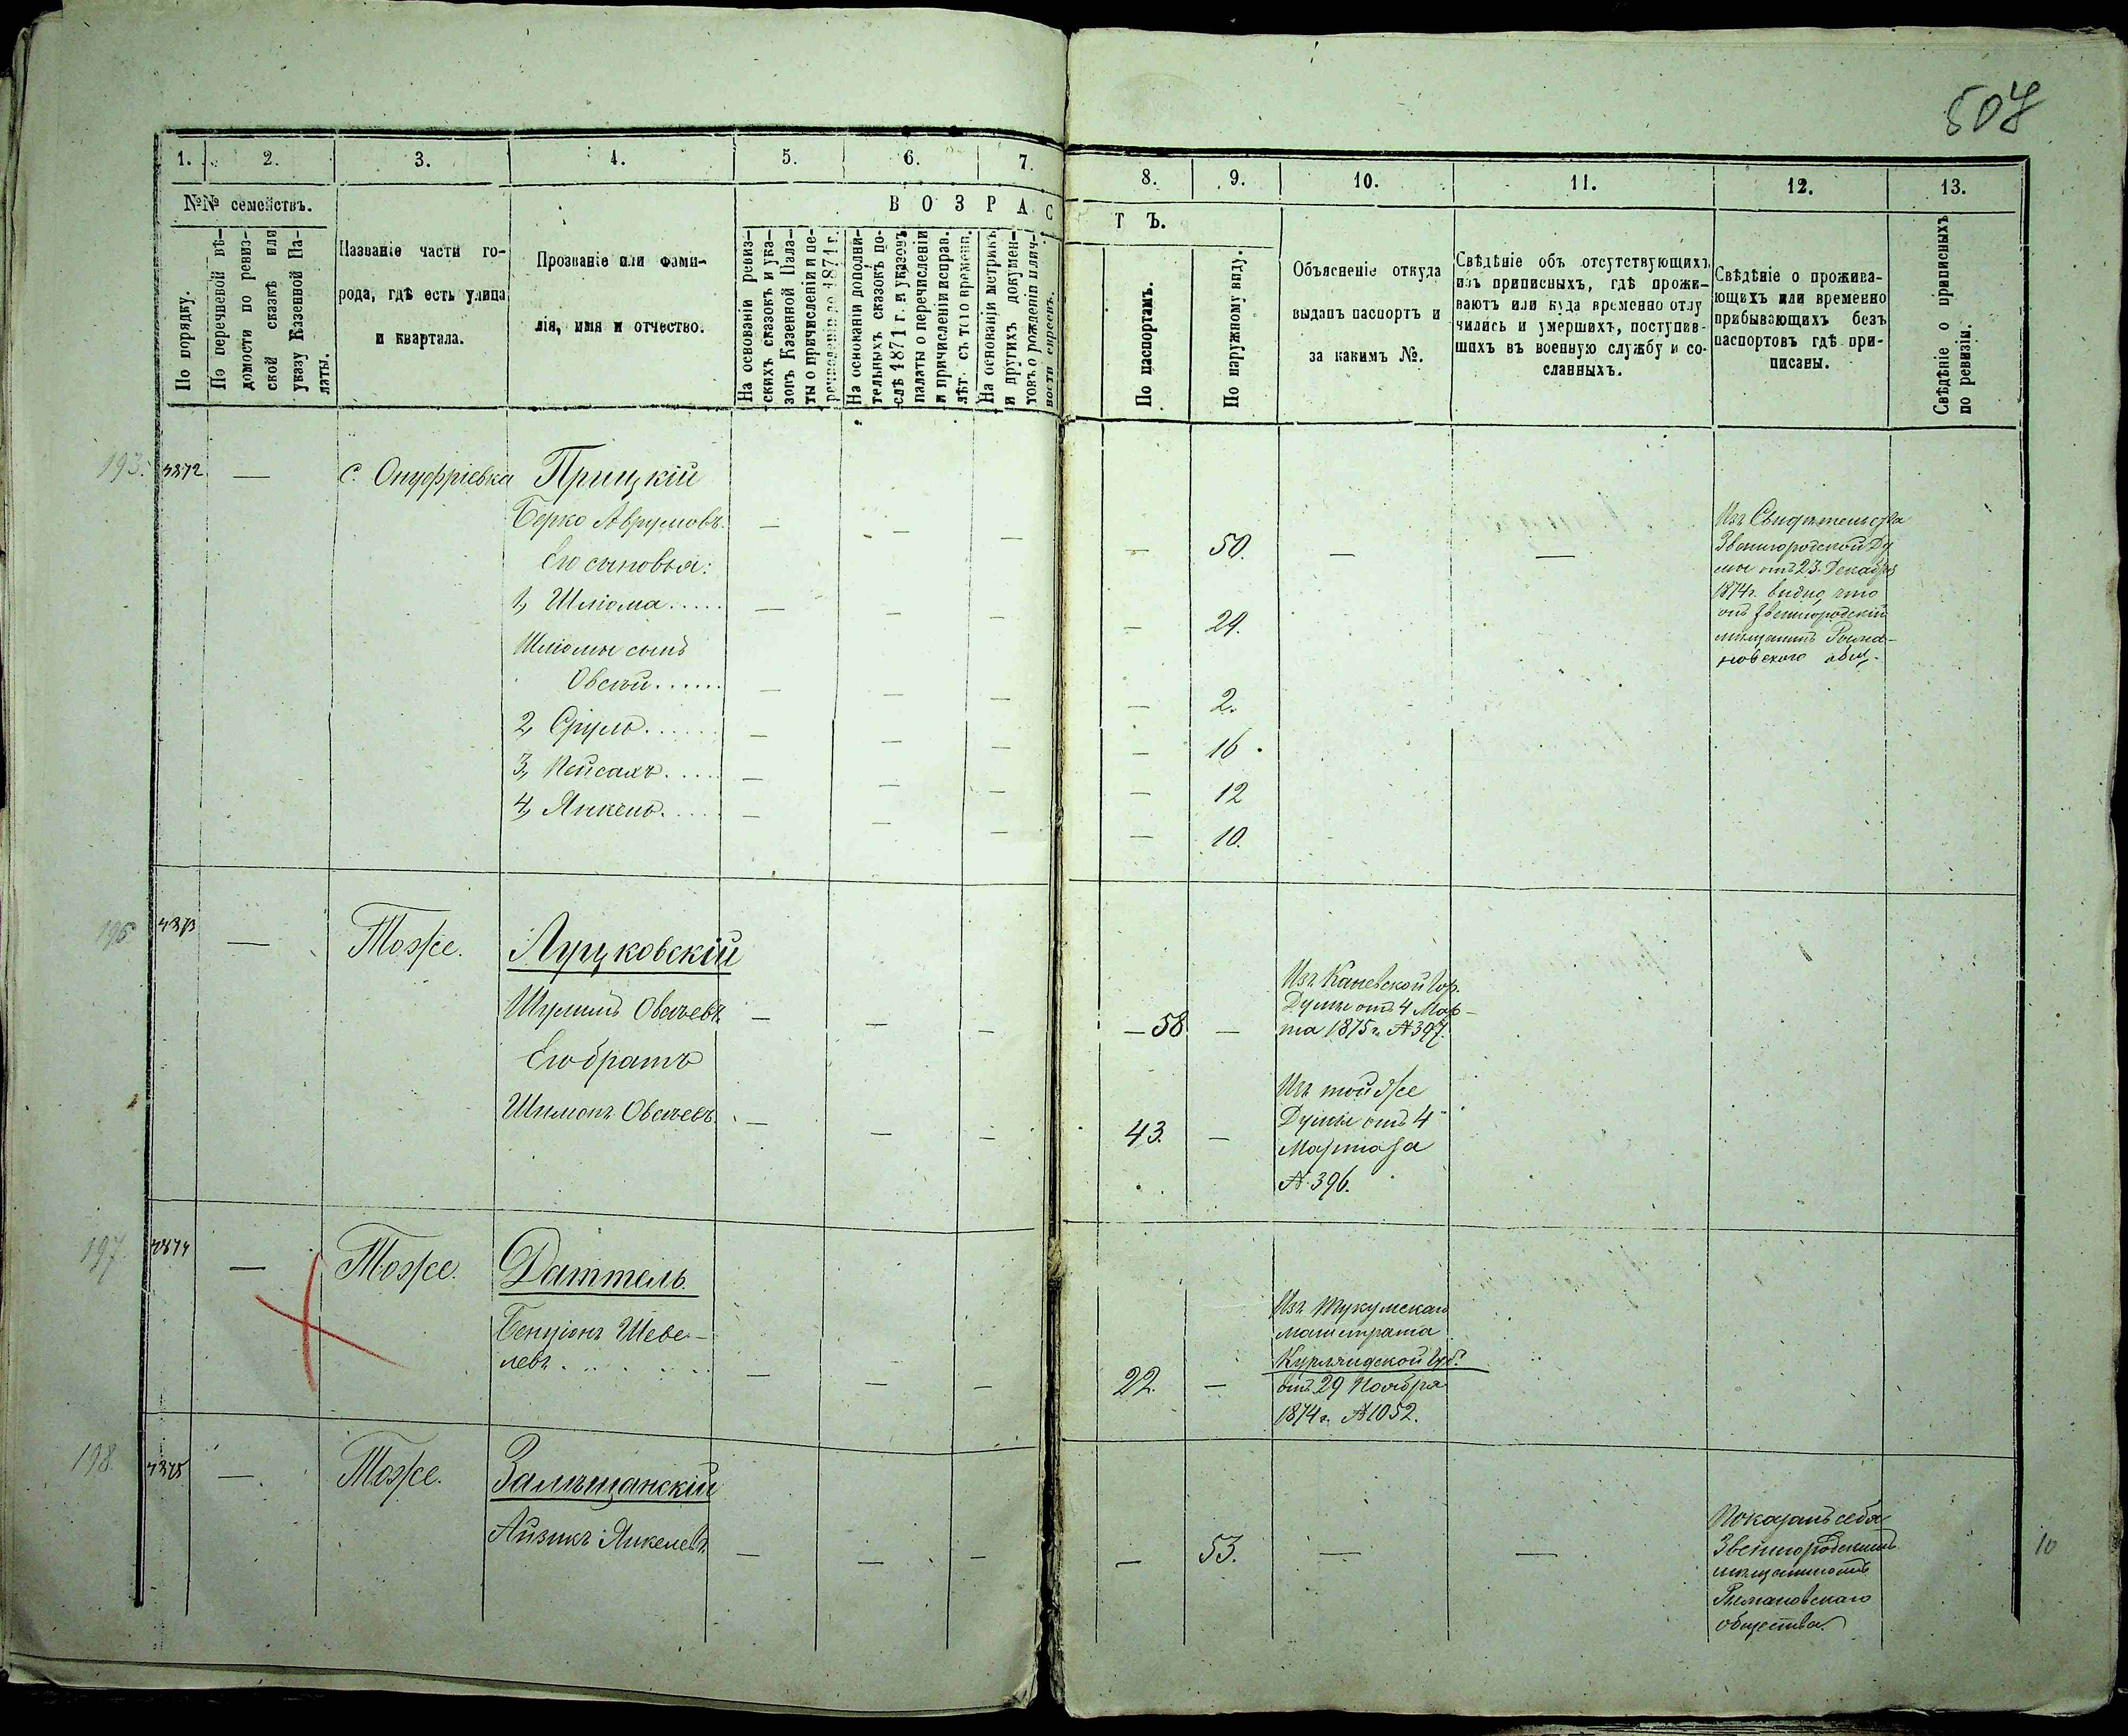 507
1.
2.
3.
4.
5.
6.
7.
8.
9.
10.
11.
12.
13.
№№ семействъ.
По порядку.
По перечневой вѣ-
домости по ревиз-
ской сказкѣ или
указу Казенной Па-
латы.
Названіе части го-
рода, гдѣ есть улица
и квартала.
Прозваніе или фами-
лія, имя и отчество.
ВОЗРАС
ТЪ.
На основаніи ревиз-
скихъ сказокъ и ука-
зовъ Казенной Пала-
ты о причисленіи и пе-
речисленіи до 1871 г.
На основаніи дополни-
тельныхъ сказокъ по-
слѣ 1871 г. и указовъ
палаты о перечисленіи
и причисленіи исправ.
лѣт. съ того времени.
На основаніи метрикъ
и другихъ докумен-
товъ о рожденіи
По паспортамъ.
По наружному виду.
Объясненіе откуда
выданъ паспортъ и
за какимъ №.
Свѣдѣніе объ отсутствующихъ
изъ приписныхъ, гдѣ прожи-
ваютъ или куда временно отлу
чились и умершихъ, поступив-
шихъ въ военную службу и со-
сланныхъ.
Свѣдѣніе о прожива-
ющихъ или временно
прибывающихъ безъ
паспортовъ гдѣ при-
писаны.
Свѣдѣніе о приписныхъ
по ревизіи.
193. — с. Онуфріевка Прицкій
Берко Аврумовъ — — — — 50. — —
Изъ Свидѣтельства
Звенигородской Ду
мы отъ 23 Декабря
1874 г. видно, что
онъ Звенигородскій
мѣщанинъ
общ.
Его сыновья:
1, Шліома..... — — — — 29.
Шліомы сынъ
Овсѣй...... — — — — 2.
2, Сруль...... — — — — 16.
3, Пейсахъ..... — — — — 12
4, Янкель..... — — — — 10.
— Тоже. Луцковскій
Шулимъ Овсѣевъ — — — — 58 —
Изъ Каневской Гор.
Думы отъ 4 Мар-
та 1875 г. № 397.
Его братъ
Шимонъ Овсѣевъ — — — 43. —
Изъ той же
Думы отъ 4
Марта за
№ 396.
197. — Тоже. Даттель.
Бенціонъ Шеве-
левъ....... — — — 22. —
Изъ Тукумскаго
магистрата
Курляндской губ.
отъ 29 Ноября
1874 г. № 1052.
198. — Тоже. Залѣщанскій
Айзикъ Янкелевъ — — — — 53. — —
Показалъ себя
Звенигородскимъ
мѣщаниномъ
общества.
10